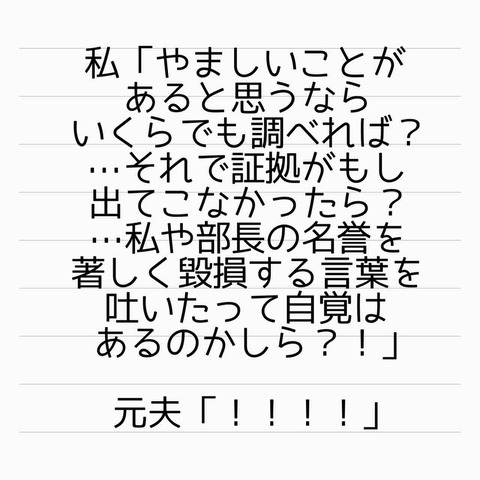 私「やましいことが
あると思うなら
いくらでも調べれば？
…それで証拠がもし
出てこなかったら？
…私や部長の名誉を
著しく毀損する言葉を
吐いたって自覚は
あるのかしら？！」
元夫「！！！！」